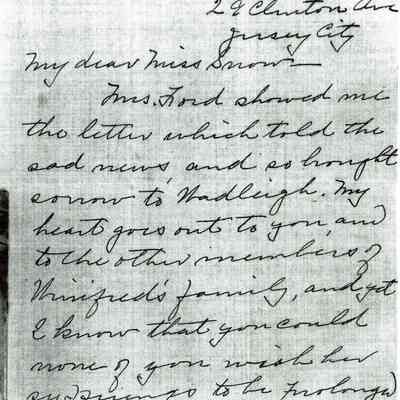 Clinton Ave
Jersey City
My dear Miss Snow—
Mrs. Ford showed me
the letter which told the
sad news, and so brought
sorrow to Hadleigh. My
heart goes out to you, and
to the other members of
Winifred's family, and yet
I know that you could
none of you wish her
sufferings to be prolonged